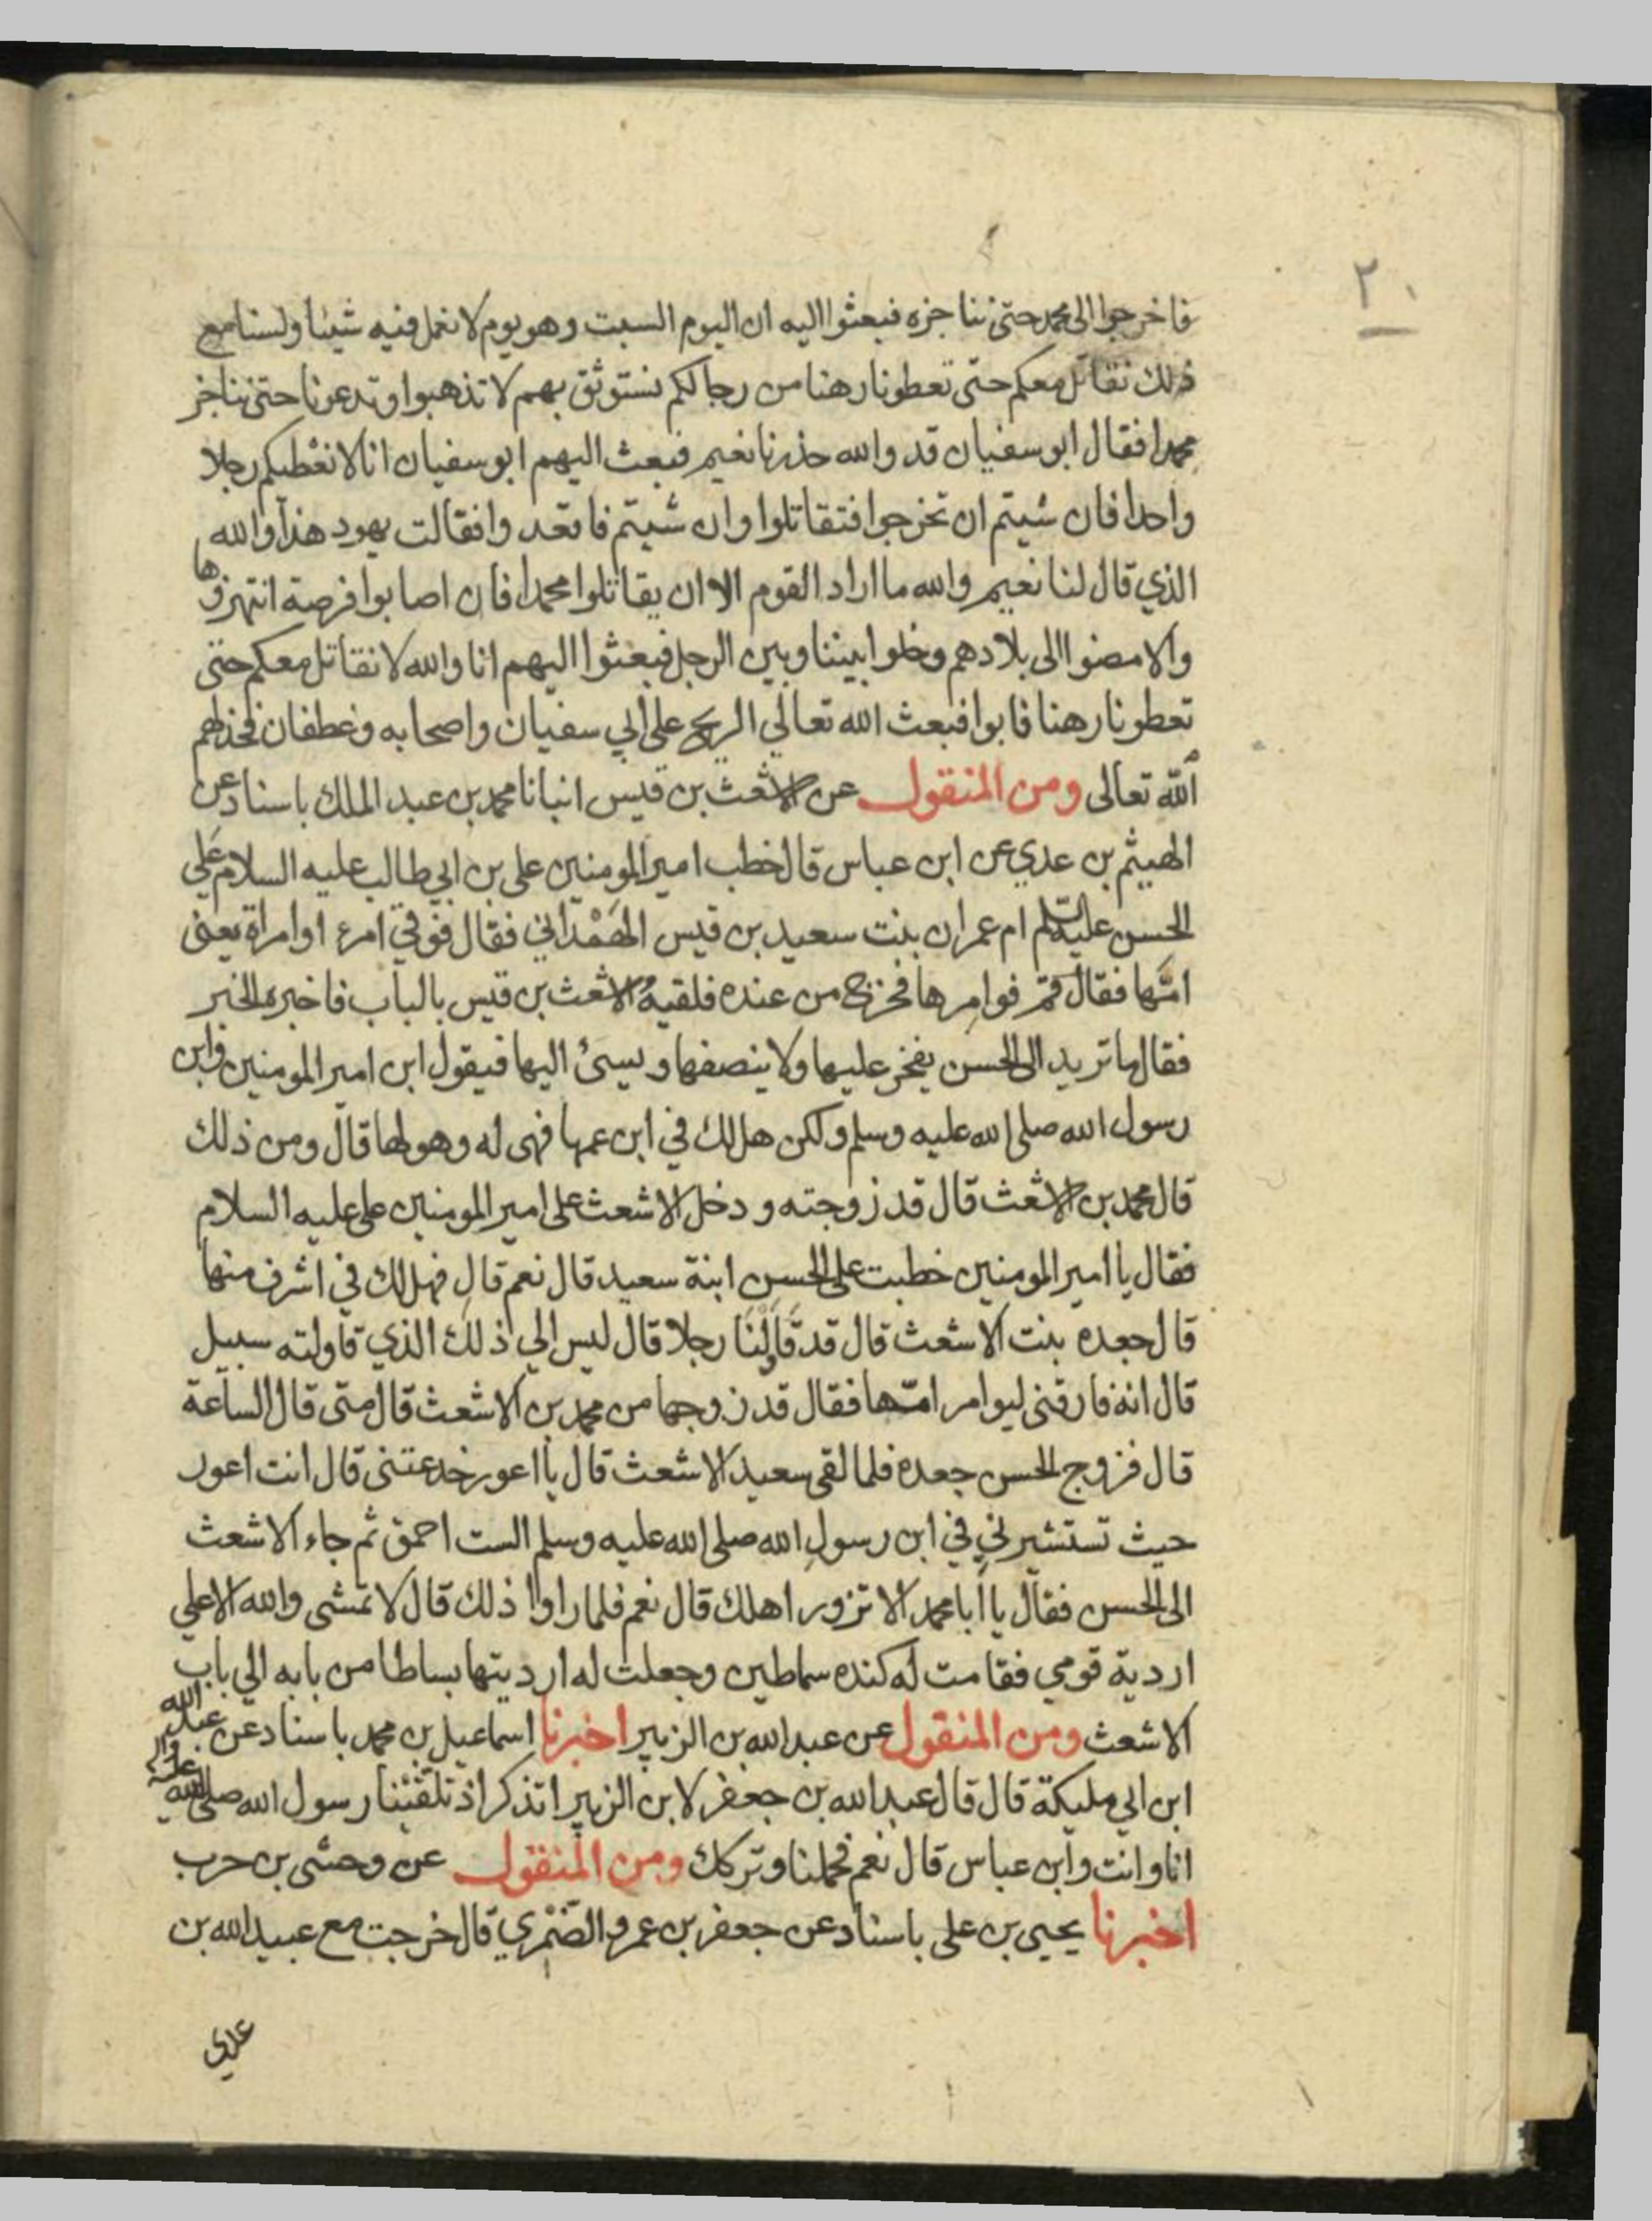 ٢٠
فاخرجوا الى محمد حتى نناجزه فبعثوا اليه ان اليوم السبت وهو يوم لا نعمل فيه شيئا ولسنا مع
ذلك نقاتل معكم حتى تعطونا رهنا من رجالكم نستوثق بهم لا تذهبوا وتدعونا حتى نناجز
محمدا فقال ابو سفيان قد والله حذرنا نعيم فبعث اليهم ابو سفيان انا لا نعْطيكم رجلا
واحدا فان شيتم ان تخرجوا فتقاتلوا وان شيتم فاقعدوا فقالت يهود هذا والله
الذي قال لنا نعيم والله ما اراد القوم الا ان يقاتلوا محمدا فان اصابوا فرصة انتهزوها
والا مضوا الى بلادهم وخلوا بيننا وبين الرجل فبعثوا اليهم انا والله لا نقاتل معكم حتى
تعطونا رهنا فابوا فبعث الله تعالي الريح على ابي سفيان واصحابه وغطفان فخذلهم
الله تعالى ومن المنقول عن الاشعث بن قيس انبانا محمد بن عبد الملك باسناد عن
الهيثم بن عدي عن ابن عباس قال خطب امير المومنين علي بن ابي طالب عليه السلام علي
الحسن عليه السلم ام عمران بنت سعيد بن قيس الهَمْداني فقال فوقي امرء او امراة يعنى
امّها فقال قم فوامِرها فخرج من عنده فلقيه الاشعث بن قيس بالباب فاخبره الخبر
فقال ما تريد الى الحسن يفخر عليها ولا ينصفها ويسئ اليها فيقول ابن امير المومنين وابن
رسول الله صلى الله عليه وسلم ولكن هل لك في ابن عمها فهى له وهو لها قال ومن ذلك
قال محمد بن الاشعث قال قد زوجته ودخل الاشعث على امير المومنين على عليه السلام
فقال يا امير المومنين خطبت على الحسن ابنة سعيد قال نعم قال فهل لك في اشرف منها
قال جعده بنت الاشعث قال قد قاوَلْنَا رجلا قال ليس الي ذلك الذي قاولته سبيل
قال انه فارقنى ليوامر امّها فقال قد زوجها من محمد بن الاشعث قال متى قال الساعة
قال فزوج الحسن جعده فلما لقى سعيد الاشعث قال يا اعور خدعتنى قال انت اعور
حيث تستشيرني في ابن رسول الله صلى الله عليه وسلم الست احمق ثم جاء الاشعث
الى الحسن فقال يا ابا محمد الا تزور اهلك قال نعم فلما راوا ذلك قال لا تمشى والله الا على
اردية قومي فقامت له كنده سماطين وجعلت له ارديتها بساطا من بابه الي باب
الاشعث ومن المنقول عن عبد الله بن الزبير اخبرنا اسماعيل بن محمد باسناد عن عبد الله
ابن ابي مليكة قال قال عبد الله بن جعفر لابن الزبير اتذكر اذ تلقينا رسول الله صلى الله عليه واله
انا وانت وابن عباس قال نعم فحملنا وتركك ومن المنقول عن وحشى بن حرب
اخبرنا يحيى بن على باسناد عن جعفر بن عمرو الضَمْري قال خرجت مع عبيد الله بن
عدي